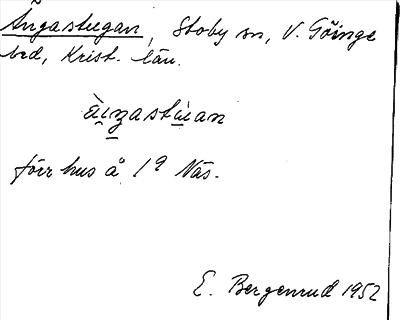 Ängastugan, Stoby sn, V. Göinge
hd, Krist. län.
förr hus å 1⁹ Näs.
E. Bergenrud 1952